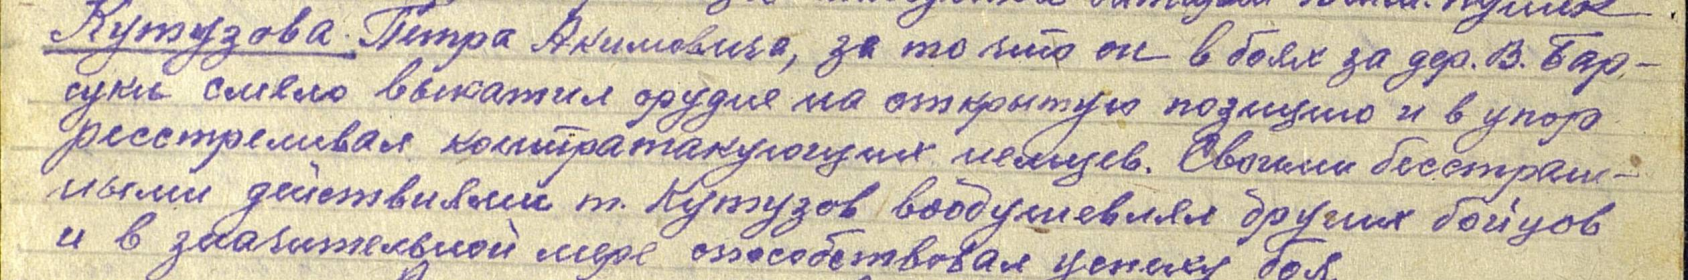 батареи
Кутузова Петра Акимовича, за то что он в боях за дер. В. Бар-
суки смело выкатил орудие на открытую позицию и в упор
расстреливал контратакующих немцев. Своими бесстраш-
ными действиями т. Кутузов воодушевлял других бойцов
и в значительной мере способствовал успеху боя